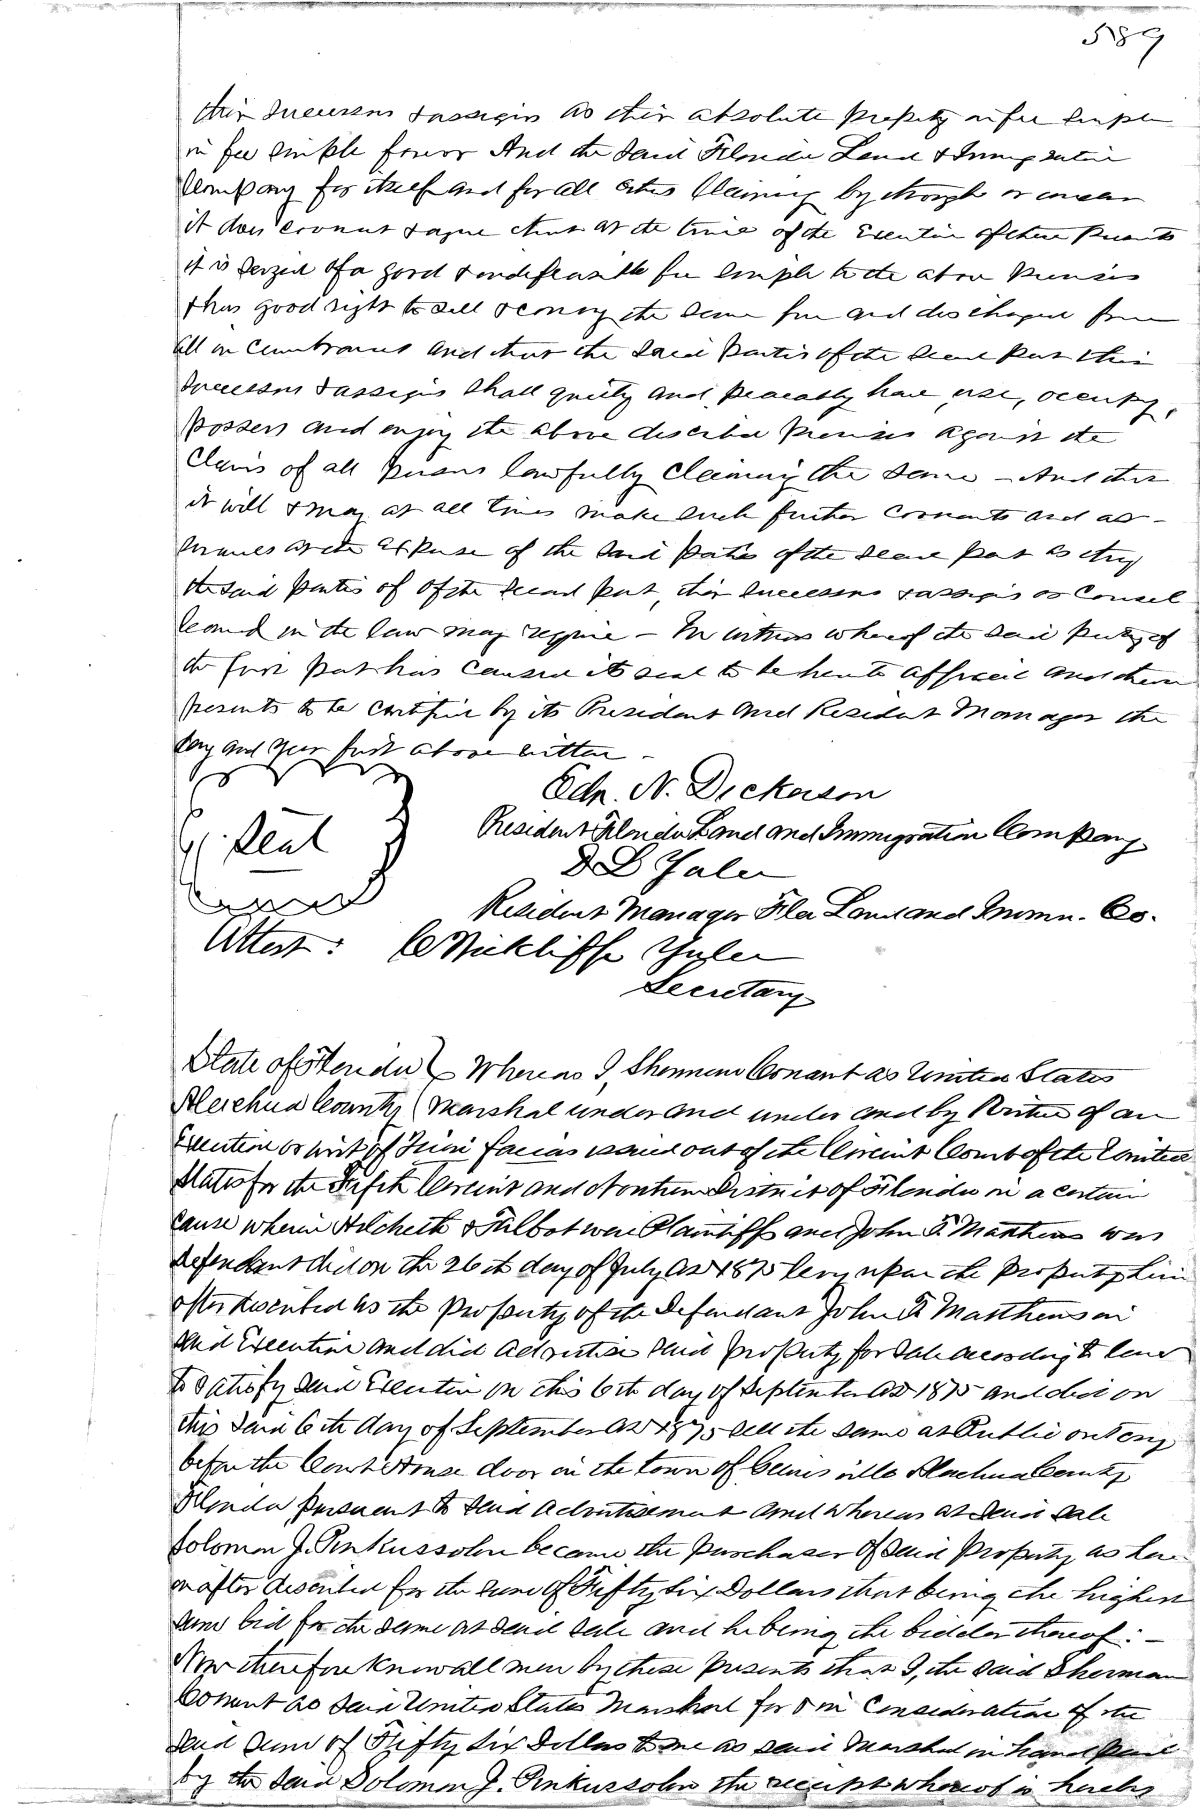 589
their successors & assigns as their absolute property in fee simple
in fee simple forever And the said Florida Land & Immigration
Company for itself and for all others Claiming by through or under
it does covenant & agree that at the time of the Execution of these Presents
it is seized of a good & indefeasible fee simple to the above Premises
& has good right to sell & convey the same free and discharged from
all in cumbrances and that the said Parties of the second part their
successors & assigns shall quietly and peaceably have, use, occupy,
possess and enjoy the above described Premises against the
Claims of all persons lawfully Claiming the same – And that
it will & may at all times make such further covenants and as-
surances at the expense of the said parties of the second part as they
the said parties of of the second part, their successors & assigns or Counsel
learned in the law may require – In witness whereof the said party of
the first part has caused its seal to be hereto affixed and these
presents to be certified by its President and Resident Manager the
day and year first above written –
Edn. N. Dickerson
President Florida Land and Immigration Company
Seal
D L Yulee
Resident Manager Fla Land and Immn. Co.
Attest: C Wickliffe Yulee
Secretary
State of Florida } Whereas I, Sherman Conant as United States
Alachua County { Marshal under and under and by Virtue of an
Execution or writ of Fieri facias issued out of the Circuit Court of the United
States for the Fifth Circuit and Northern District of Florida in a certain
cause wherein Hilcheth & Talbot were Plaintiffs and John F. Matthews was
defendant did on the 26th day of July AD 1875 levy upon the property herein
after described as the property of the Defendant John F. Matthews in
said Execution and did advertise said property for sale according to law
to satisfy said Execution on this 6th day of September AD 1875 and did on
this said 6th day of September AD 1875 sell the same at Public outcry
before the Court House door in the town of Gainesville Alachua County
Florida pursuant to said advertisement and whereas at said sale
Solomon J. Pinkussohn became the purchaser of said property as here
in after described for the sum of Fifty Six Dollars that being the highest
sum bid for the same at said sale and he being the bidder thereof: –
Now therefore know all men by these presents that I, the said Sherman
Conant as said United States Marshal for & in consideration of the
said sum of Fifty Six Dollars to me as said Marshal in hand paid
by the said Solomon J. Pinkussohn the receipt whereof is hereby